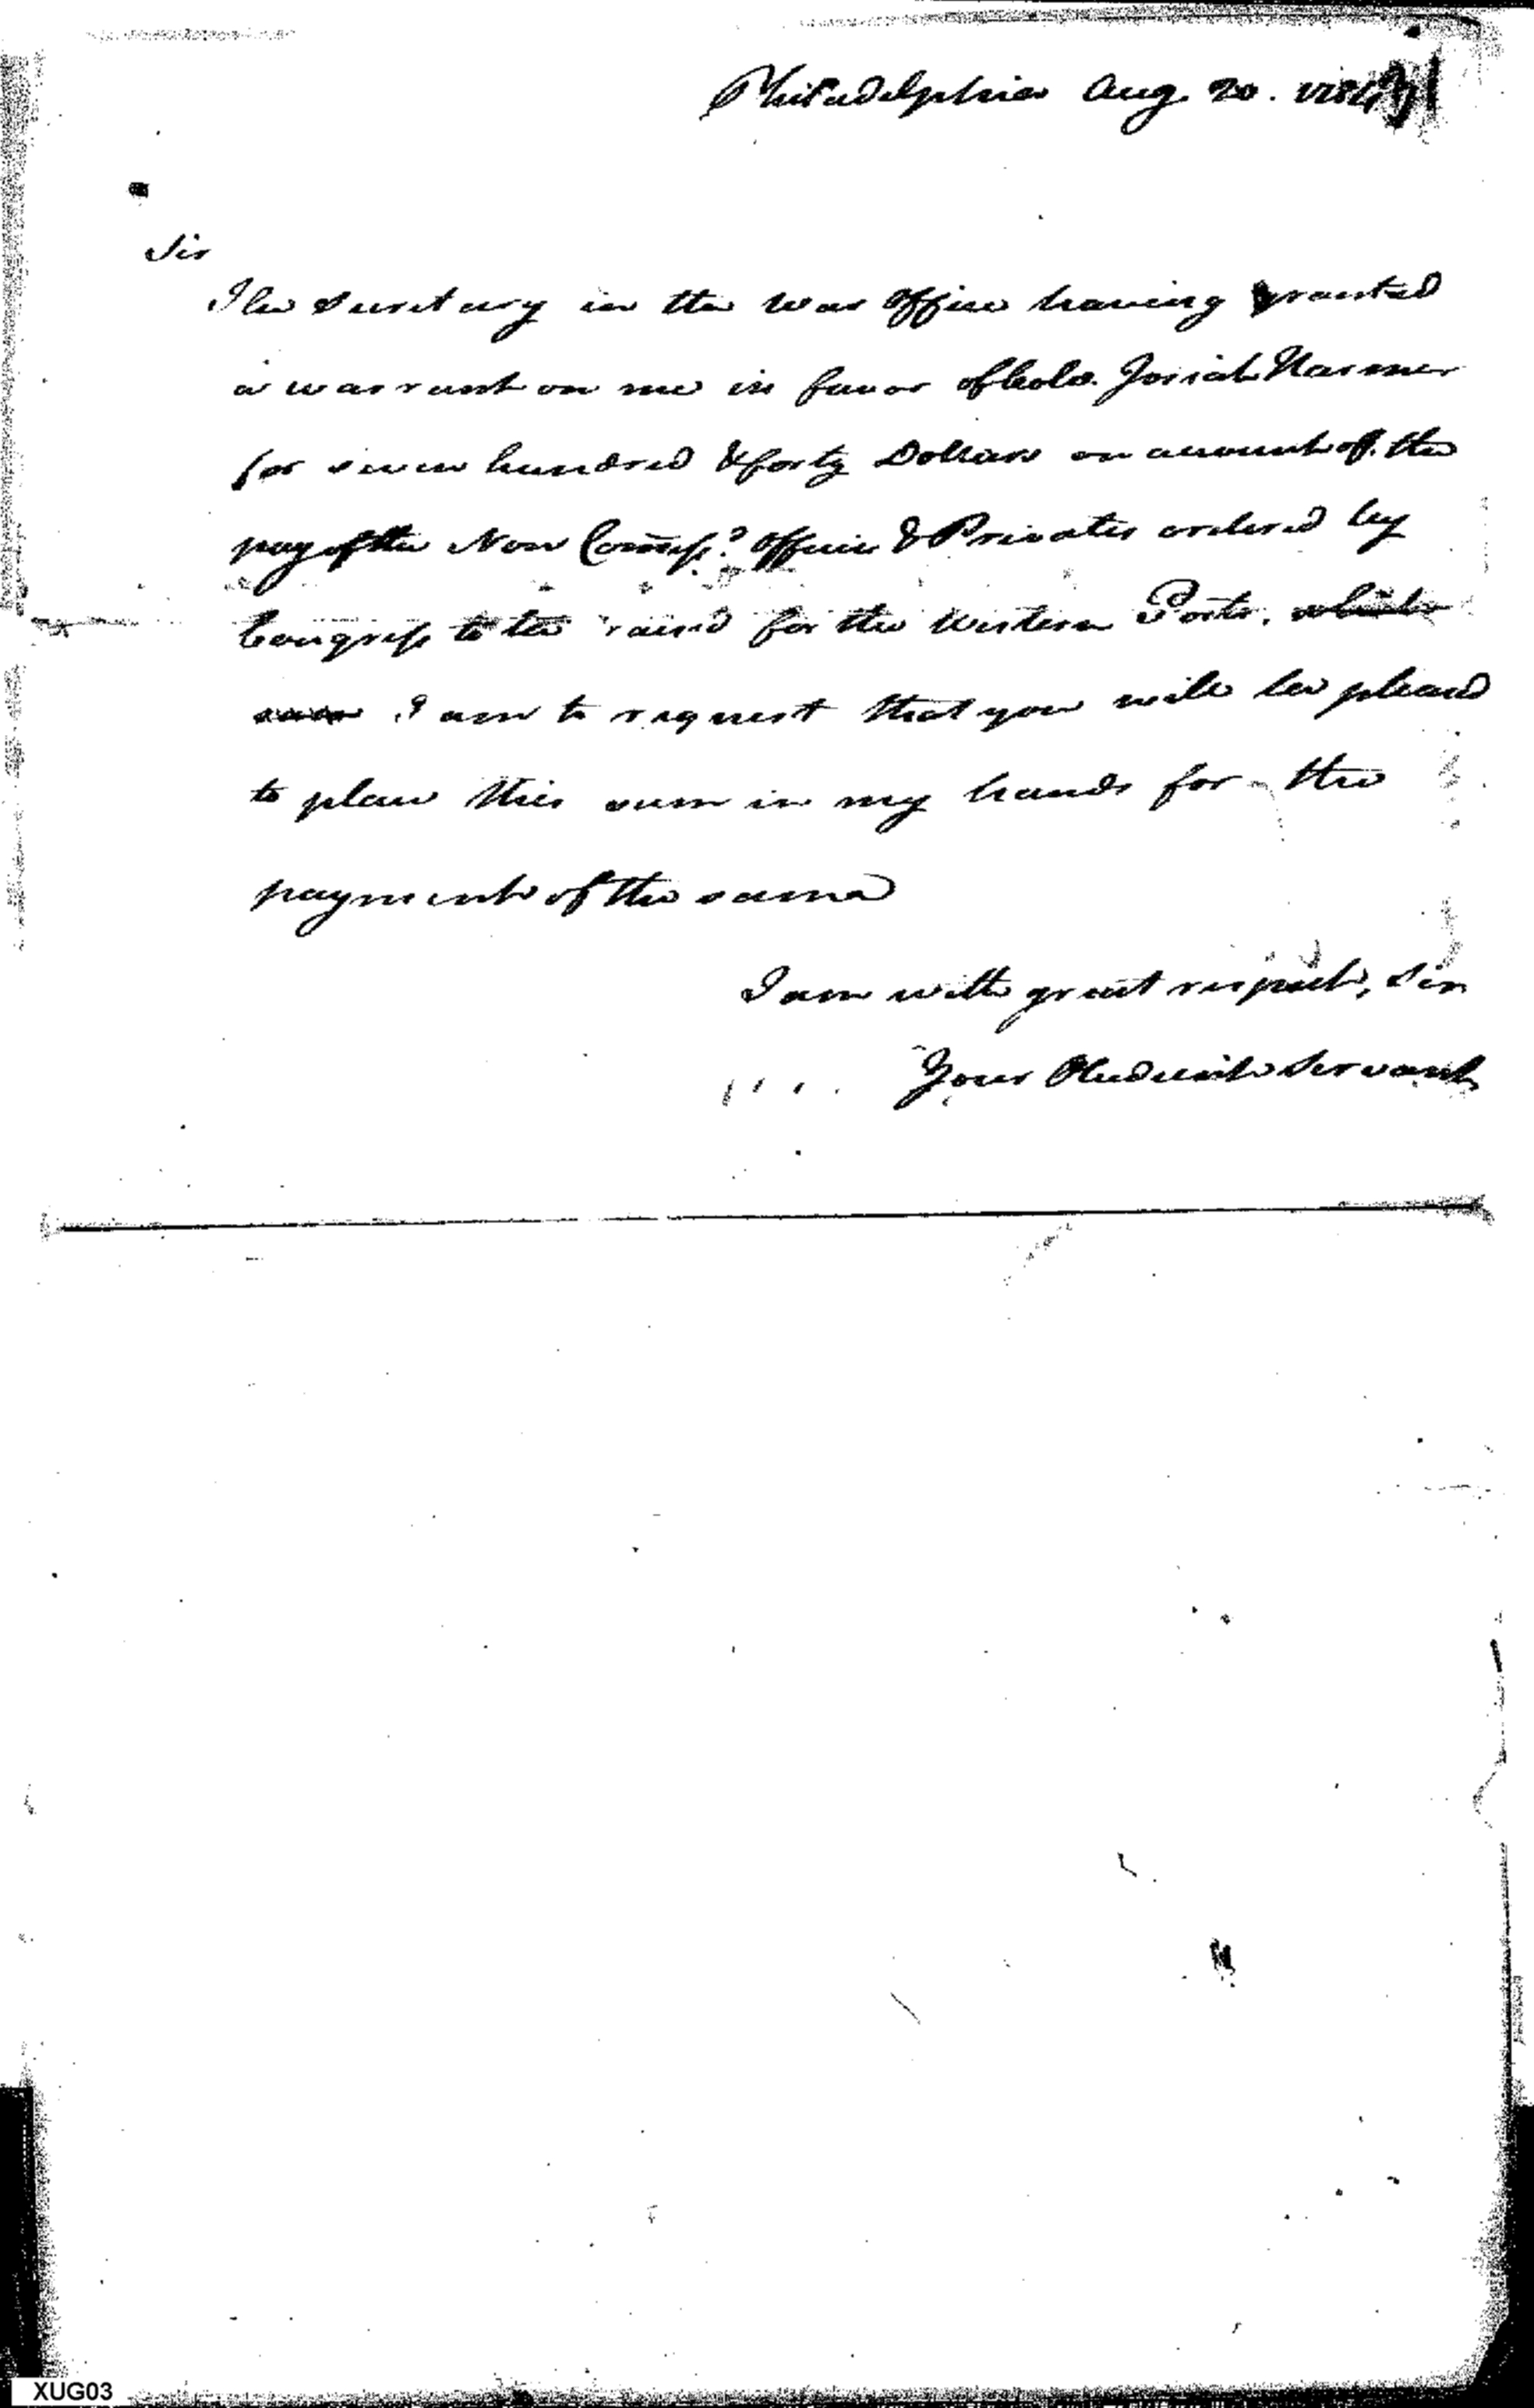 Philadelphia Aug 20. 1784
Sir
The Secretary in the War Office having granted
a warrant on me in favor of Colo. Josiah Harmer
for seven hundred & forty Dollars on account of the
pay of the Non Comiss.d Officers & Privates ordered by
Congress to be raised for the Western Posts, which
I am to request that you will be pleased
to place this sum in my hands for the
payment of the same
I am with great respect, Sir
Your Obedient Servant
XUG03